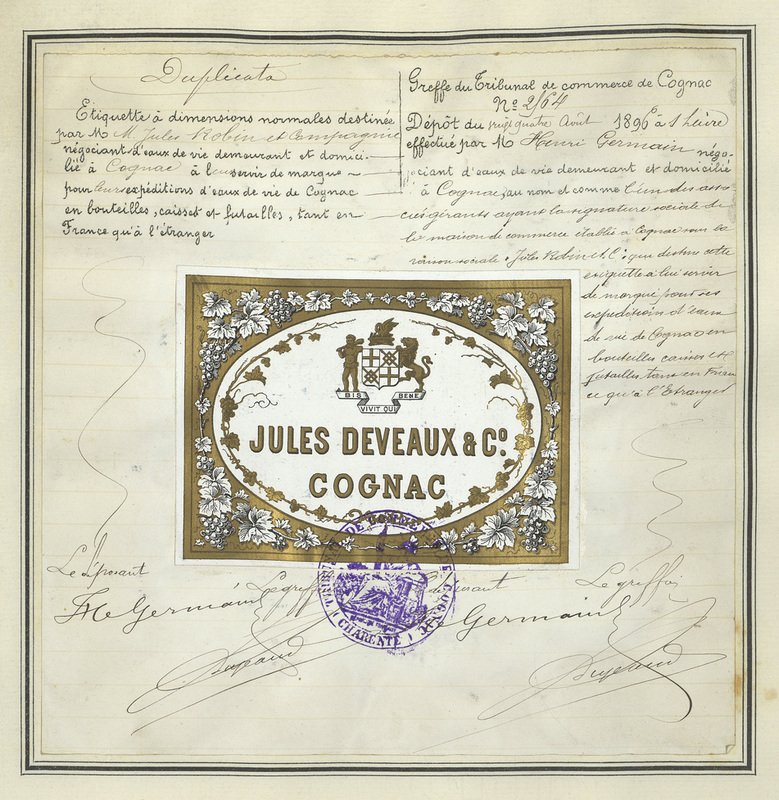 Duplicata
Etiquette à dimensions normales destinée
par M M. Jules Robin et Compagnie
négociant d'eaux de vie demeurant et domici-
lié à Cognac à leur servir de marque
pour leurs expéditions d'eaux de vie de Cognac
en bouteilles, caisses et futailles, tant en
France qu'à l'étranger
Greffe du Tribunal de commerce de Cognac
Nº 2164
Dépôt du vingt quatre Août 1896 à 1 heure
effectué par M Henri Germain négo-
ciant d'eaux de vie demeurant et domicilié
à Cognac, au nom et comme l'un des asso-
ciés gérants ayant la signature sociale de
la maison de commerce établie à Cognac sous la
raison sociale: Jules Robin & Cie qui destine cette
étiquette à lui servir
de marque pour ses
expéditions d'eaux
de vie de Cognac en
bouteilles caisses et
futailles tant en Fran
ce qu'à l'Etranger
BIS BENE
VIVIT QUI
JULES DEVEAUX & Cº.
COGNAC
TRIBUNAL DE COMMERCE DE COGNAC
CHARENTE
Le Déposant Le greffier Le déposant Le greffier
He Germain Germain